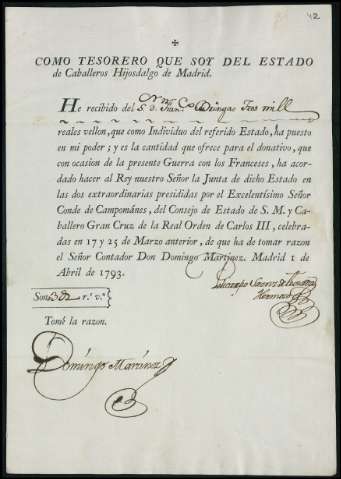 42
✠
COMO TESORERO QUE SOY DEL ESTADO
de Caballeros Hijosdalgo de Madrid.
He recibido del S. D. Fran.co Tres mill
reales vellon, que como Individuo del referido Estado, ha puesto
en mi poder; y es la cantidad que ofrece para el donativo, que
con ocasion de la presente Guerra con los Franceses, ha acor-
dado hacer al Rey nuestro Señor la Junta de dicho Estado en
las dos extraordinarias presididas por el Excelentísimo Señor
Conde de Campománes, del Consejo de Estado de S. M. y Ca-
ballero Gran Cruz de la Real Orden de Carlos III, celebra-
das en 17 y 25 de Marzo anterior, de que ha de tomar razon
el Señor Contador Don Domingo Martinez. Madrid 1 de
Abril de 1793.
Son r.s v.n
Tomé la razon.
Domingo Martinez